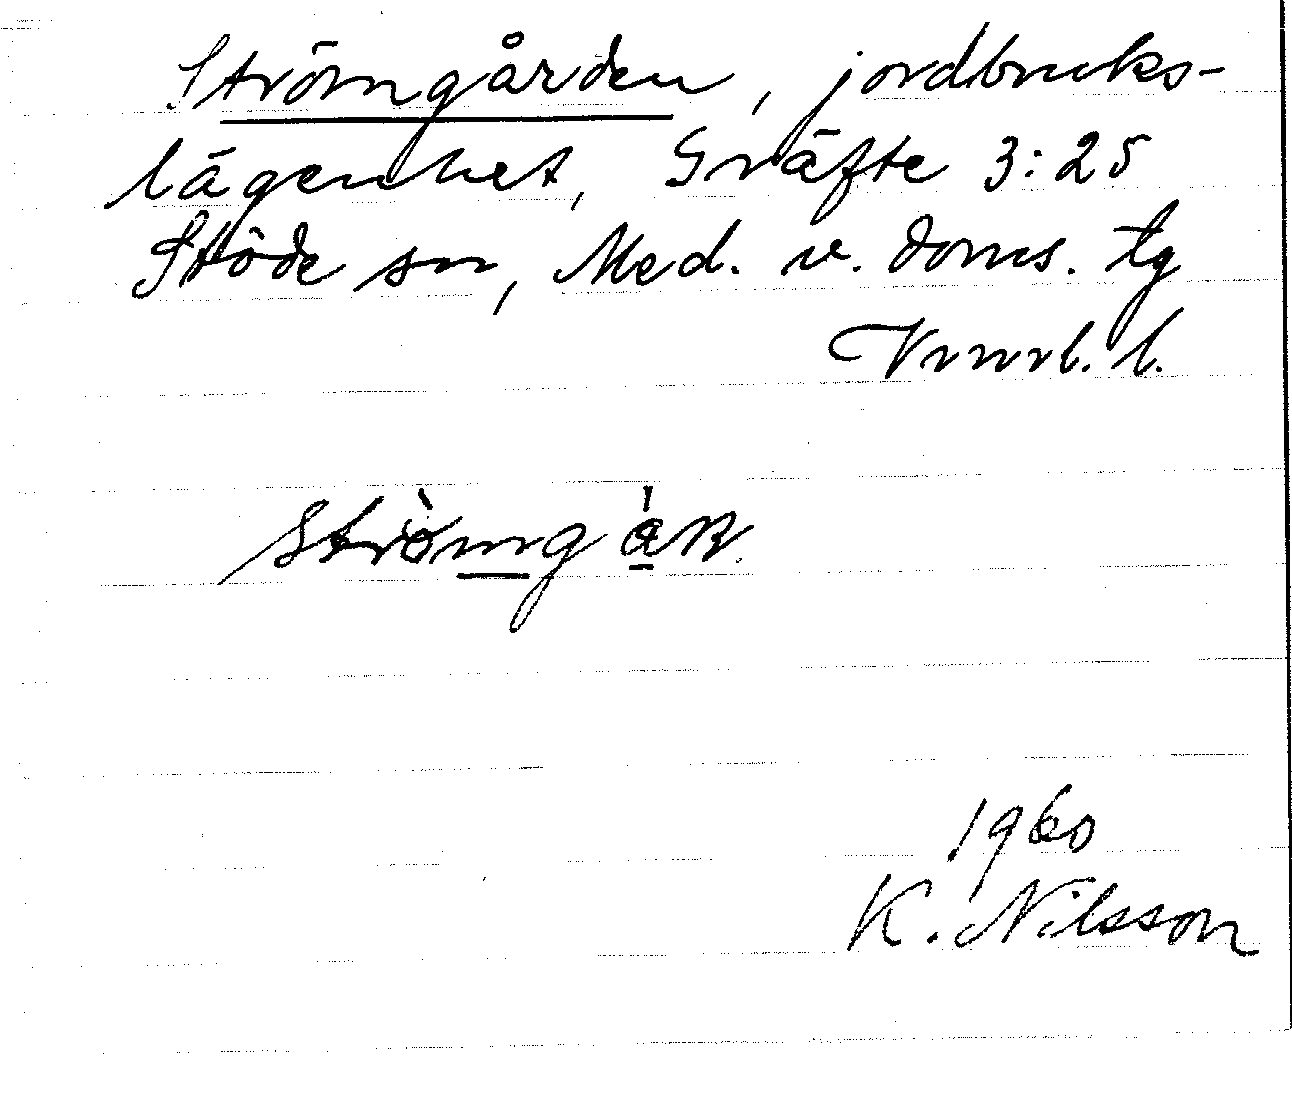 Strömgården, jordbruks-
lägenhet, Gräfte 3:25
Stöde sn, Med. v. doms. tg
Vrnrl. l.
1960
K. Nilsson